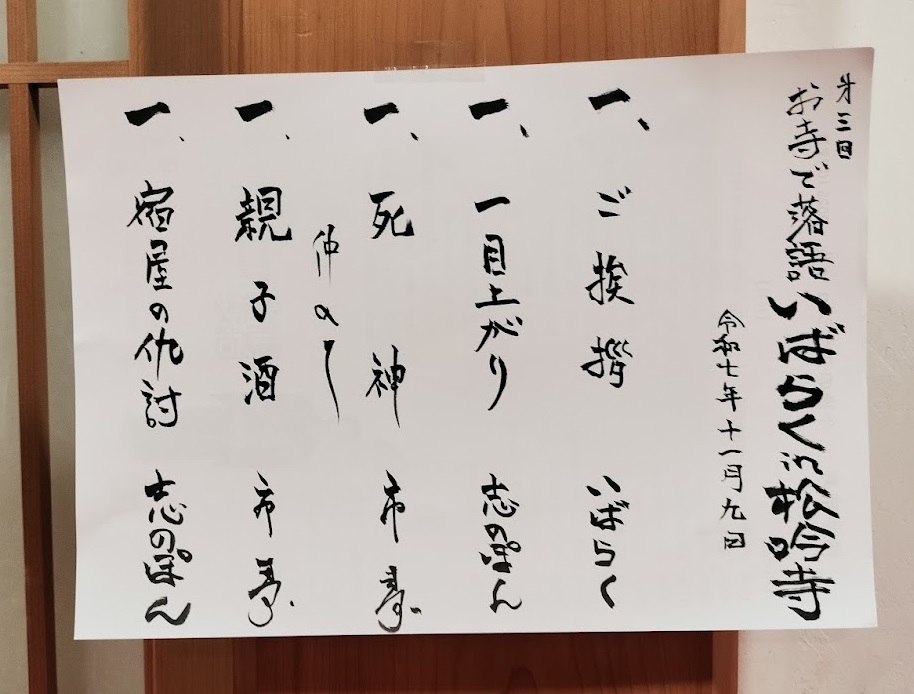 第三回
お寺で落語 いばらくin松吟寺
令和七年十一月九日
一、ご挨拶 いばらく
一、一目上がり 志のぽん
一、死神 市寿
仲の〳
一、親子酒 市寿
一、宿屋の仇討 志のぽん